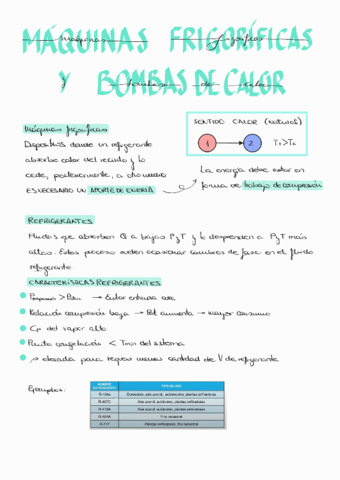 MÁQUINAS FRIGORÍFICAS
Y BOMBAS DE CALOR
SENTIDO CALOR (NATURAL)
1 → 2 T₁>T₂
Máquinas frigoríficas
Dispositivos donde un refrigerante
absorbe calor del recinto y lo
cede, posteriormente, a otro
ES NECESARIO UN APORTE DE ENERGÍA
La energía debe estar en
forma de trabajo de compresión
REFRIGERANTES
Fluidos que absorben Q a bajas P y T y lo desprenden a P y T más
altas. Estos procesos suelen ocasionar cambios de fase en el fluido
refrigerante
CARACTERÍSTICAS REFRIGERANTES
> Patm → Evitar entrada aire
Relación compresión baja → Pot aumenta → mayor consumo
Cp del vapor alto
Punto congelación < Tmin del sistema
elevada para requerir menos cantidad de V de refrigerante
Ejemplos:
R-134a
R-407C
R-410A
R-404A
R-717